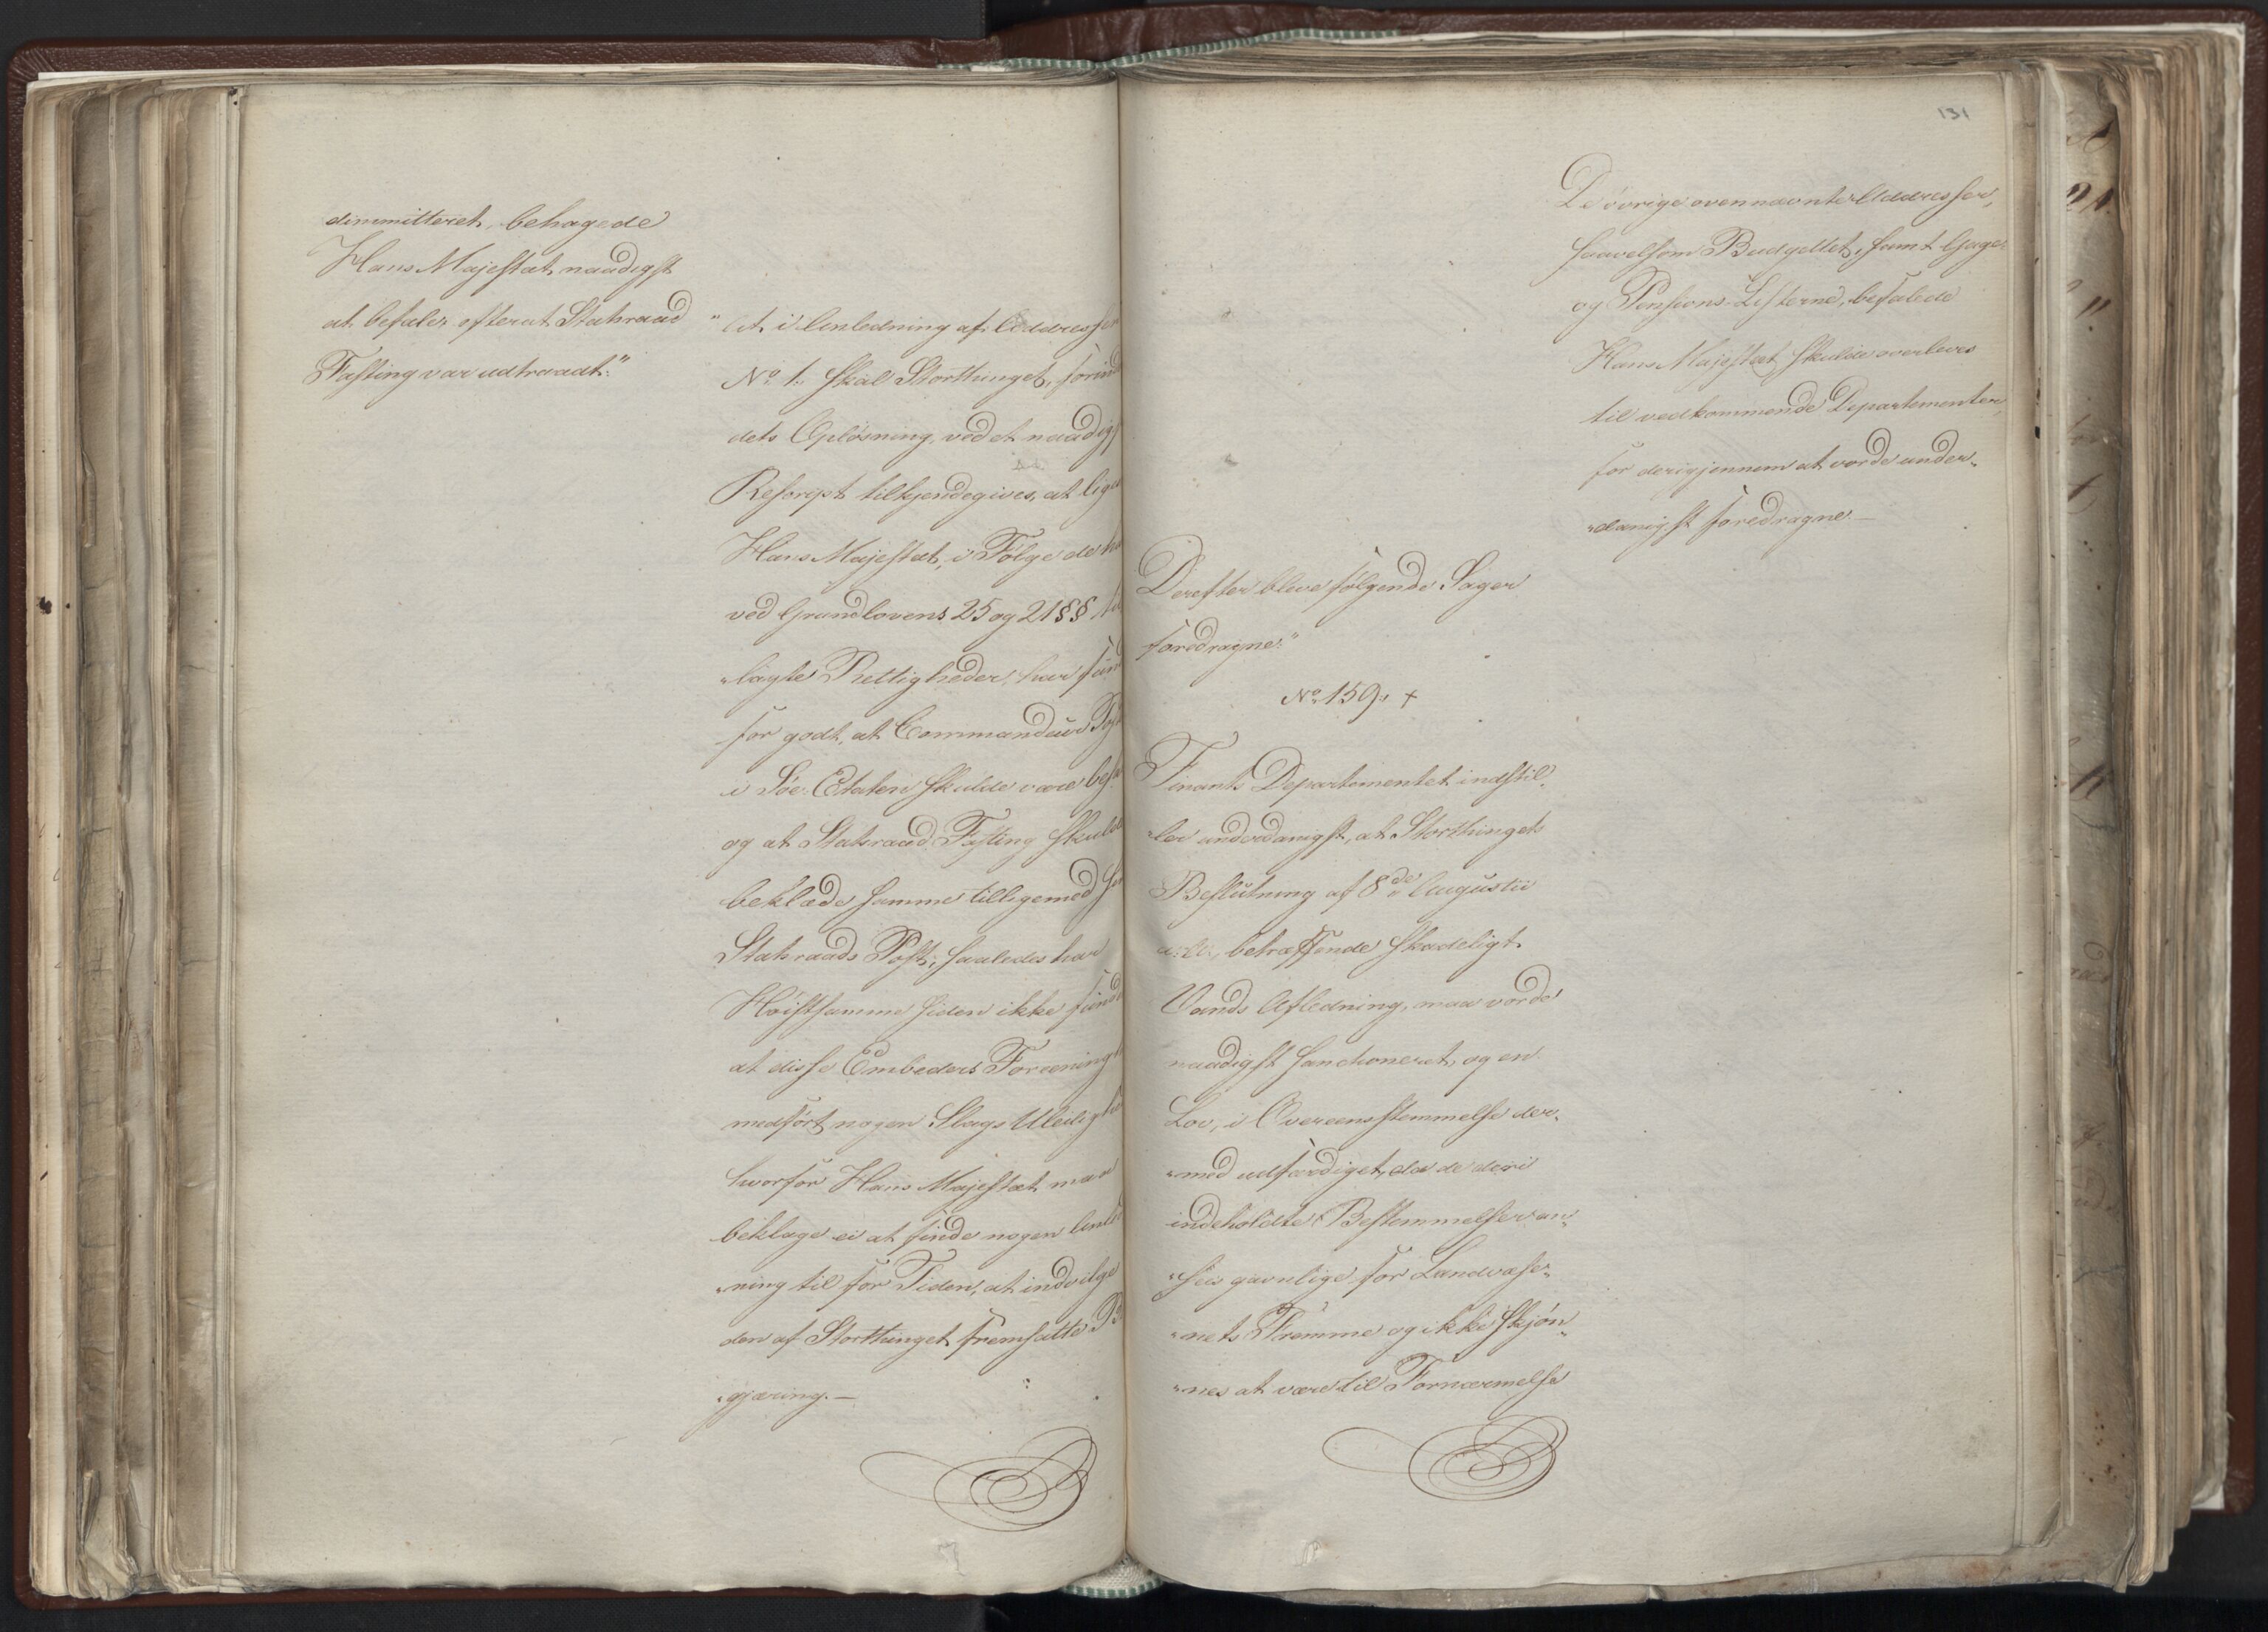 dimmitteret, behagede
Hans Majestæt naadigst
at befale, efterat Statsraad
Fasting var udtraadt:"
"At i Anledning af Addressen
No 1. skal Storthinget, forind
dets Opløsning, ved et naadigst
Rescript tilkjendegives, at lige
Hans Majestæt, i Følge de
ved Grundlovens 25 og 21 §§
"lagte Rettigheder, har fun
for godt, at Commandeur Post
i Søe-Etaten skulde være besa
og at Statsraad Fasting skulde
beklæde samme tilligemed
Statsraads Post; saaledes har
Høistsamme siden ikke funde
at disse Embeders Forening
medført nogen Slags Uleilighed
hvorfor Hans Majestæt maae
beklage ei at finde nogen Anled
"ning til for Tiden, at indvilge
den af Storthinget fremsatte Be
"gjæring.—
131
De øvrige ovennævnte Addresser,
saavelsom Budgettet, samt Gage-
og Pensions-Listerne, befalede
Hans Majestæt, skulde overleves
til vedkommende Departementer,
for derigjennem at vorde under-
"danigst foredragne.—
Derefter bleve følgende Sager
foredragne:"
No 159. +
Finants Departementet indstil-
"ler underdanigst, at Storthingets
Beslutning af 8de Augustii
a: c:, betræffende skadeligt
Vands Afledning, maa vorde
naadigst sanctioneret, og en
Lov, i Overeensstemmelse der-
"med udfærdiget, da de deri
indeholdte Bestemmelser an-
"sees gavnlige for Landvæse-
"nets Fremme og ikke skjøn-
"nes at være til Fornærmelse